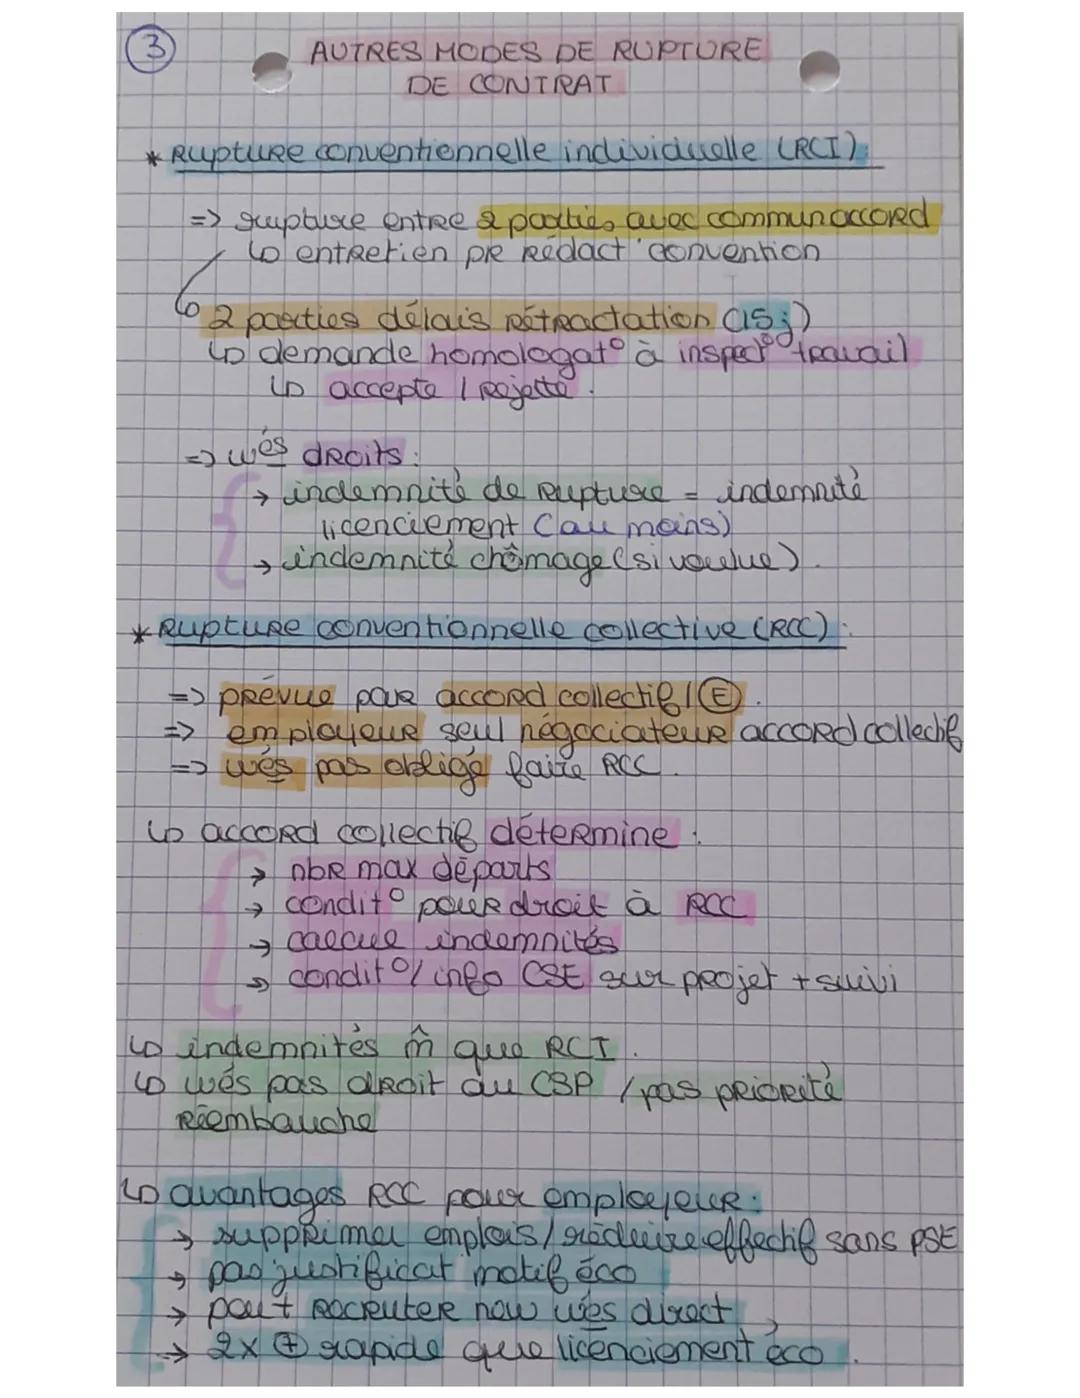 3
AUTRES MODES DE RUPTURE
DE CONTRAT
* Rupture conventionnelle individuelle (RCI):
=> rupture entre 2 parties avec commun accord
↳ entretien pr rédact° convention
↳ 2 parties délais rétractation (15j)
↳ demande homologat° à inspect° travail
↳ accepte / rejette.
=> wés droits:
→ indemnité de rupture = indemnité
licenciement (au moins)
→ indemnité chômage (si voulue).
* Rupture conventionnelle collective (RCC):
=> prévue par accord collectif / Ⓔ.
=> employeur seul négociateur accord collectif
=> wés pas obligé faire RCC.
↳ accord collectif détermine:
→ nbr max départs
→ condit° pour droit à RCC
→ calcul indemnités
→ condit°/ info CSE sur projet + suivi
↳ indemnités m̂ que RCI.
↳ wés pas droit au CSP / pas priorité
réembauche
↳ avantages RCC pour employeur:
→ supprimer emplois / réduire effectif sans PSE
→ pas justificat° motif éco
→ peut recruter nouv wés direct
→ 2x ⊕ rapide que licenciement éco.